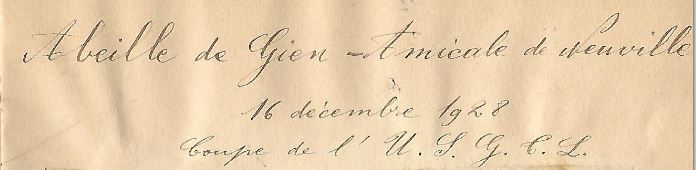 Abeille de Gien - Amicale de Neuville
16 décembre 1928
Coupe de l'U.S.G.C.L.